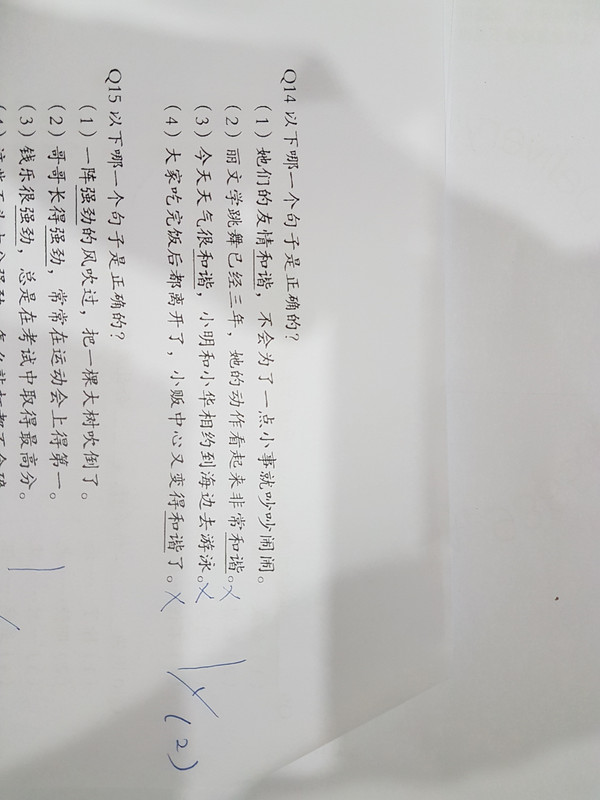 Q14 以下哪一个句子是正确的?
(1) 她们的友情和谐，不会为了一点小事就吵吵闹闹。
(2) 丽文学跳舞已经三年，她的动作看起来非常和谐。X
(3) 今天天气很和谐，小明和小华相约到海边去游泳。X
(4) 大家吃完饭后都离开了，小贩中心又变得和谐了。X
(2)
Q15 以下哪一个句子是正确的?
(1) 一阵强劲的风吹过，把一棵大树吹倒了。
(2) 哥哥长得强劲，常常在运动会上得第一。
(3) 钱乐很强劲，总是在考试中取得最高分。